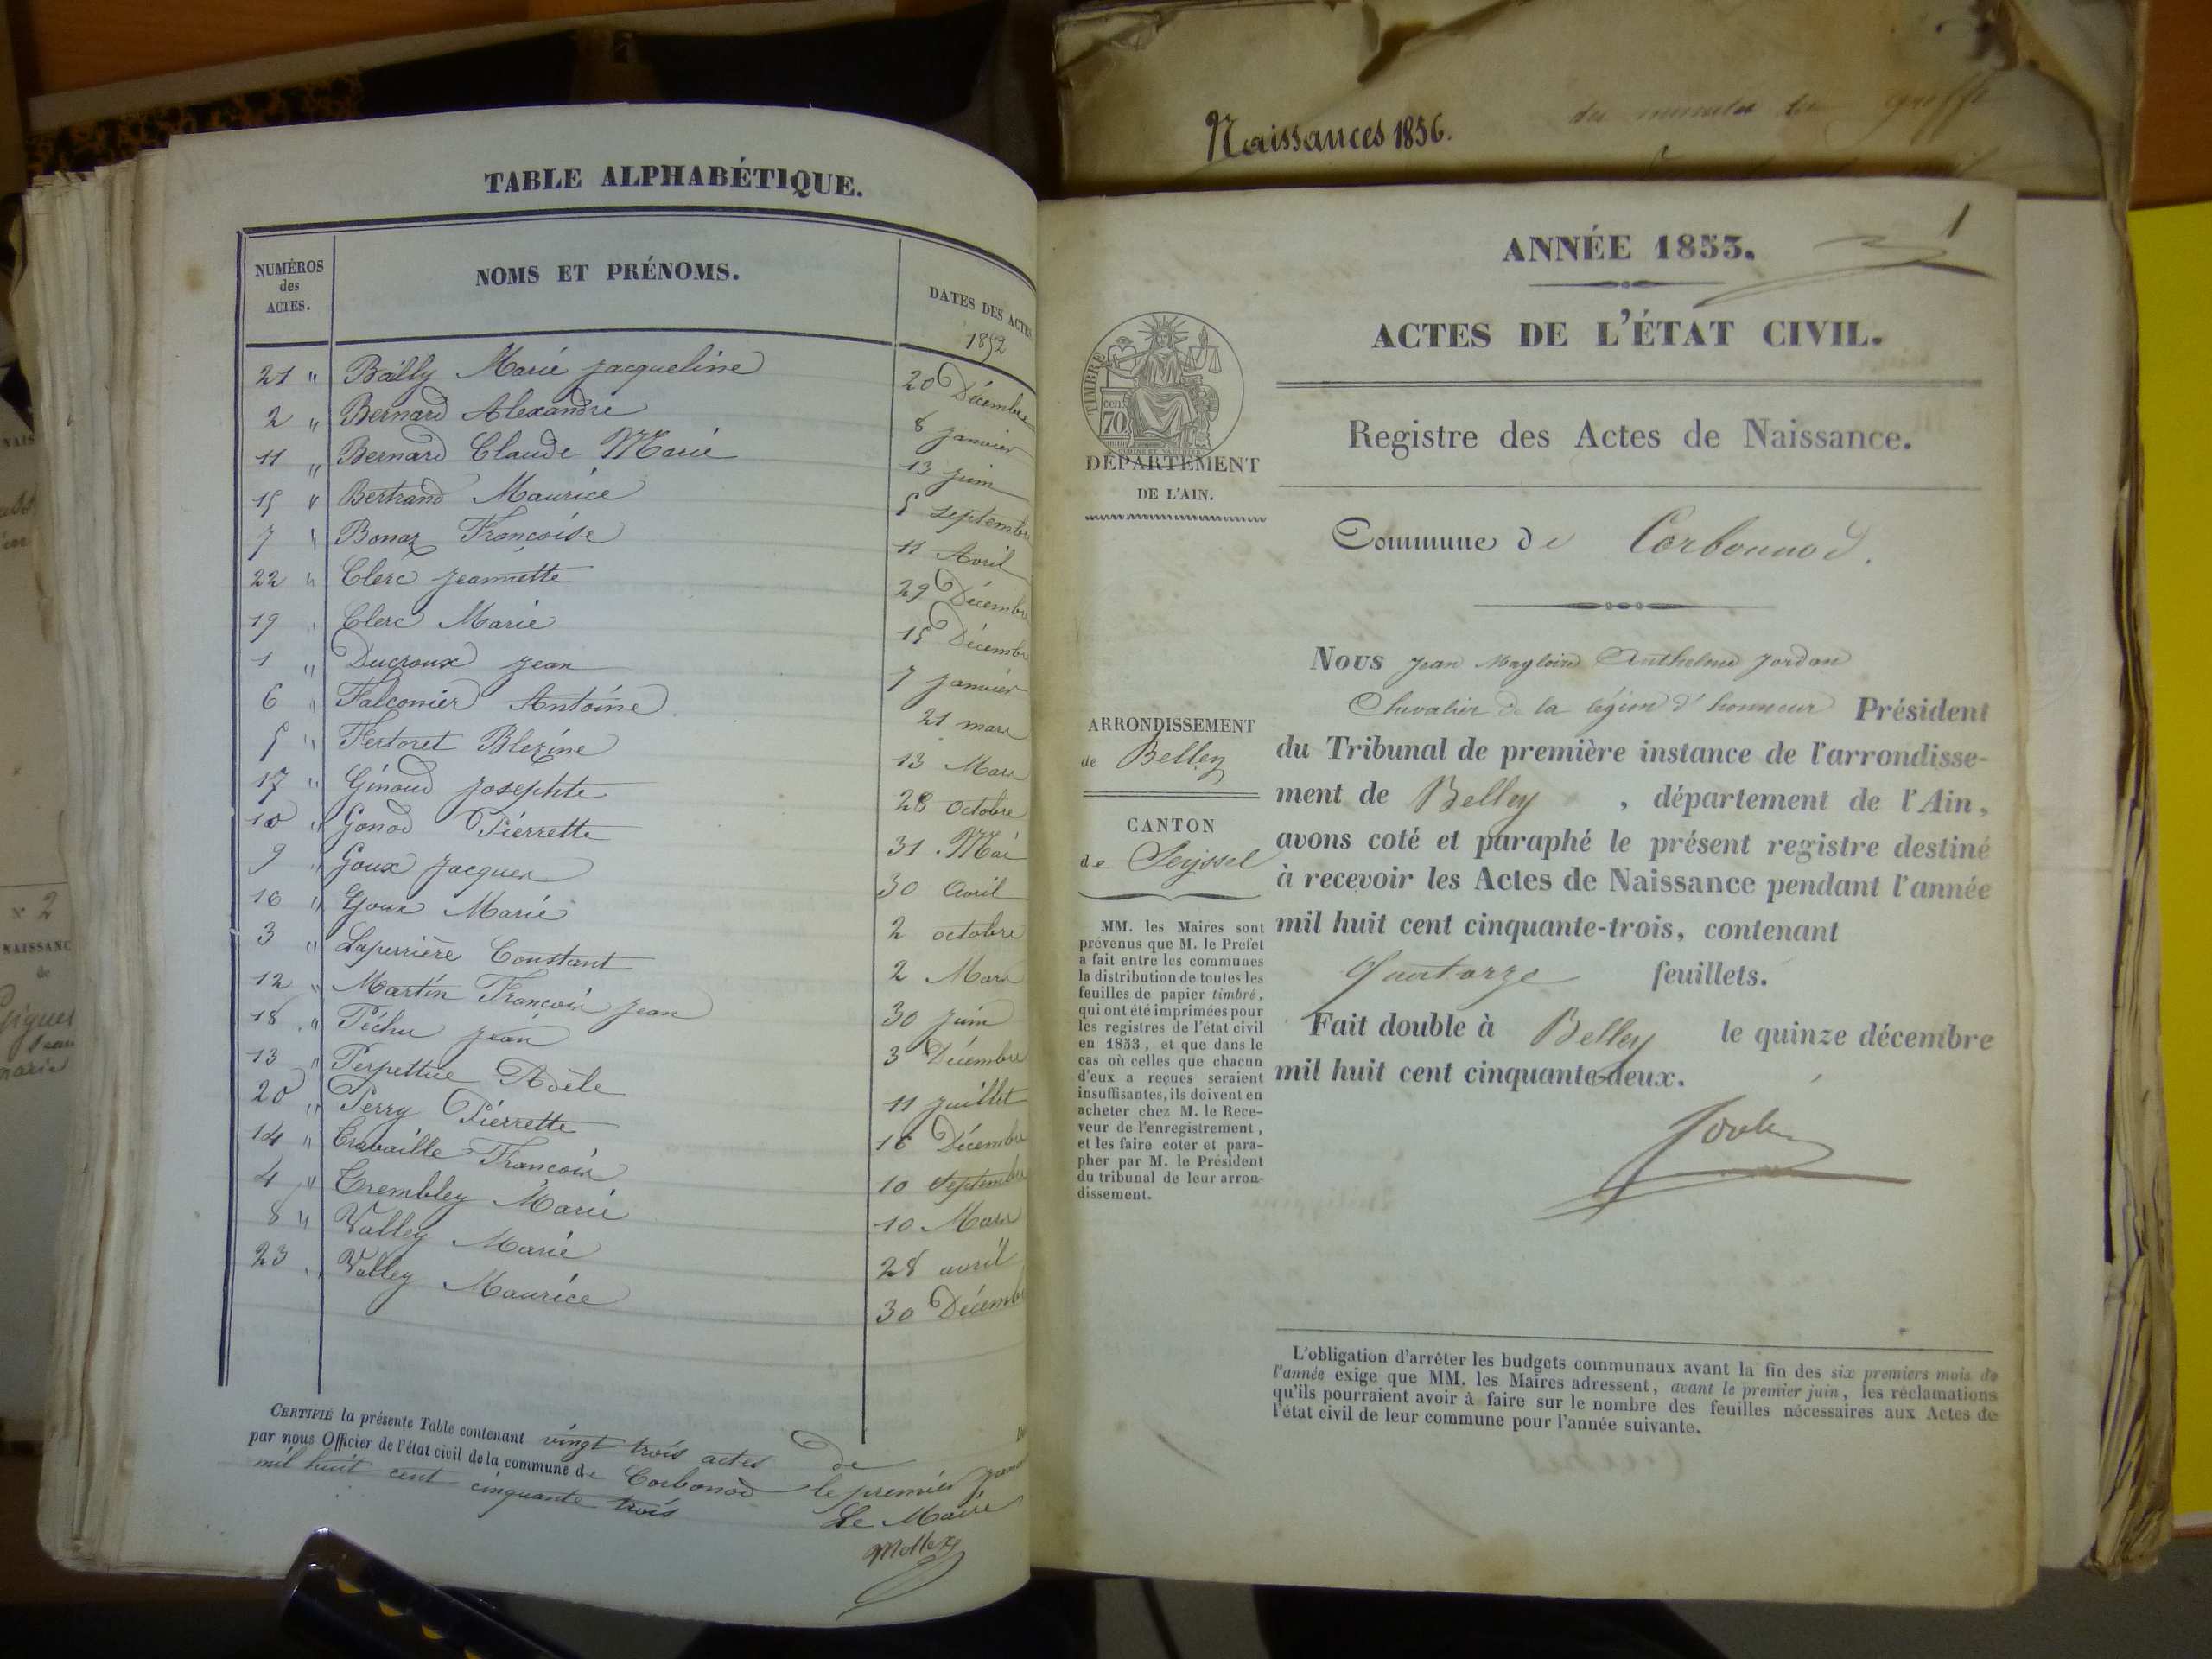 TABLE ALPHABÉTIQUE.
NUMÉROS
des
ACTES.
NOMS ET PRÉNOMS.
DATES DES ACTES
1852
21 " Bailly Marie Jacqueline 20 Décembre
2 " Bernard Alexandre 8 janvier
11 " Bernard Claude Marie 13 juin
15 " Bertrand Maurice 5 septembre
7 " Bonaz Françoise 11 Avril
22 " Clerc Jeannette 29 Décembre
19 " Clerc Marie 15 Décembre
1 " Ducroux Jean 7 janvier
6 " Falconier Antoine 21 mars
5 " Fertoret Blezine 13 Mars
17 " Ginoud Josephte 28 octobre
10 " Gonod Pierrette 31 Mai
9 " Goux Jacques 30 Avril
16 " Goux Marie 2 octobre
3 " Laperrière Constant 2 Mars
12 " Martin François Jean 30 juin
18 " Péchu Jean 3 Décembre
13 " Perpettue Adèle 11 juillet
20 " Perry Pierrette 16 Décembre
14 " Travaille François 10 Septembre
4 " Trembley Marie 10 Mars
8 " Valley Marie 28 avril
23 " Valley Maurice 30 Décembre
CERTIFIÉ la présente Table contenant vingt trois actes de
par nous Officier de l'état civil de la commune de Corbonod le premier
mil huit cent cinquante trois
Le Maire
Naissances 1856.
du greffe
1
ANNÉE 1853.
ACTES DE L'ÉTAT CIVIL.
Registre des Actes de Naissance.
TIMBRE
cen.
70
DÉPARTEMENT
DE L'AIN.
Commune de Corbonod.
Nous Jean Magloire Anthelme Jordan
Chevalier de la légion d'honneur Président
du Tribunal de première instance de l'arrondisse-
ment de Belley, département de l'Ain,
avons coté et paraphé le présent registre destiné
à recevoir les Actes de Naissance pendant l'année
mil huit cent cinquante-trois, contenant
feuillets.
Fait double à Belley le quinze décembre
mil huit cent cinquante-deux.
ARRONDISSEMENT
de Belley
CANTON
de Seyssel
MM. les Maires sont
prévenus que M. le Préfet
a fait entre les communes
la distribution de toutes les
feuilles de papier timbré,
qui ont été imprimées pour
les registres de l'état civil
en 1853, et que dans le
cas où celles que chacun
d'eux a reçues seraient
insuffisantes, ils doivent en
acheter chez M. le Rece-
veur de l'enregistrement,
et les faire coter et para-
pher par M. le Président
du tribunal de leur arron-
dissement.
L'obligation d'arrêter les budgets communaux avant la fin des six premiers mois de
l'année exige que MM. les Maires adressent, avant le premier juin, les réclamations
qu'ils pourraient avoir à faire sur le nombre des feuilles nécessaires aux Actes de
l'état civil de leur commune pour l'année suivante.
N° 2
NAISSANC
de